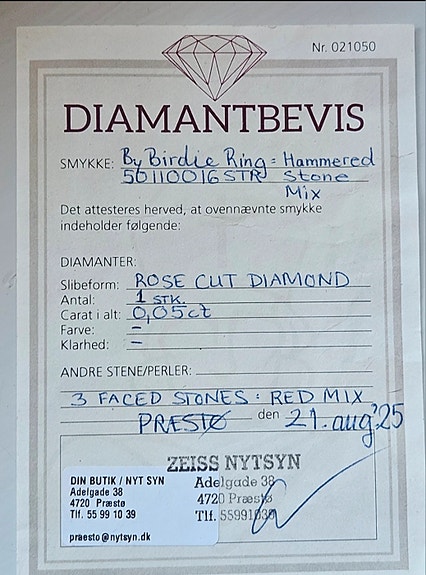 Nr. 021050
DIAMANTBEVIS
SMYKKE: By Birdie Ring = Hammered
50110016STR Stone
Mix
Det attesteres herved, at ovennævnte smykke
indeholder følgende:
DIAMANTER:
Slibeform: ROSE CUT DIAMOND
Antal: 1 STK.
Carat i alt: 0,05ct
Farve: –
Klarhed: –
ANDRE STENE/PERLER:
3 FACED STONES : RED MIX
PRÆSTØ den 21. aug '25
ZEISS NYTSYN
Adelgade 38
4720 Præstø
Tlf. 55991039
DIN BUTIK / NYT SYN
Adelgade 38
4720 Præstø
Tlf. 55 99 10 39
praesto@nytsyn.dk